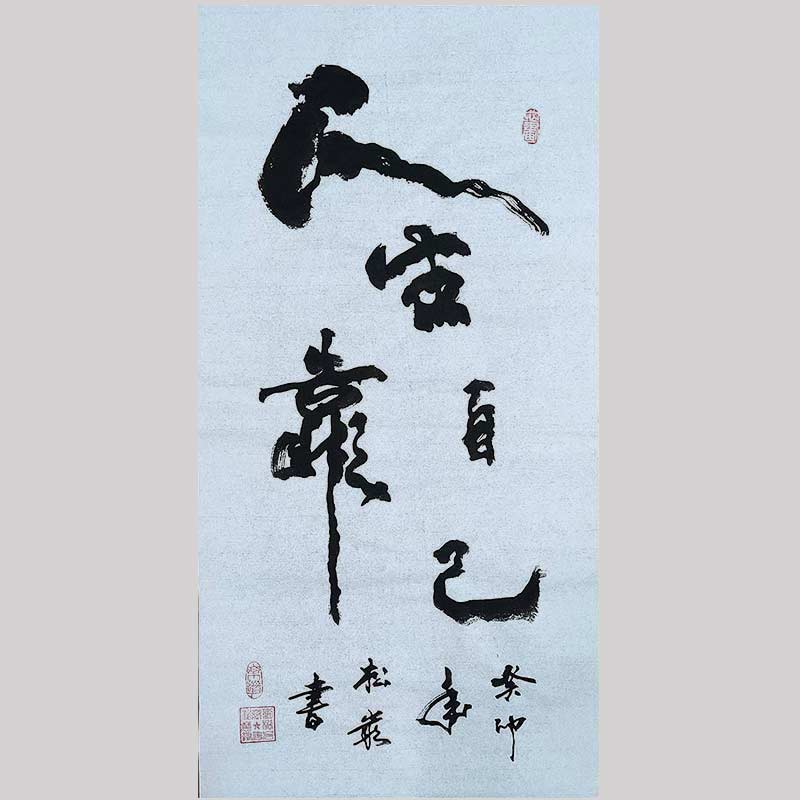 人生
靠自己
癸卯
年
松
書